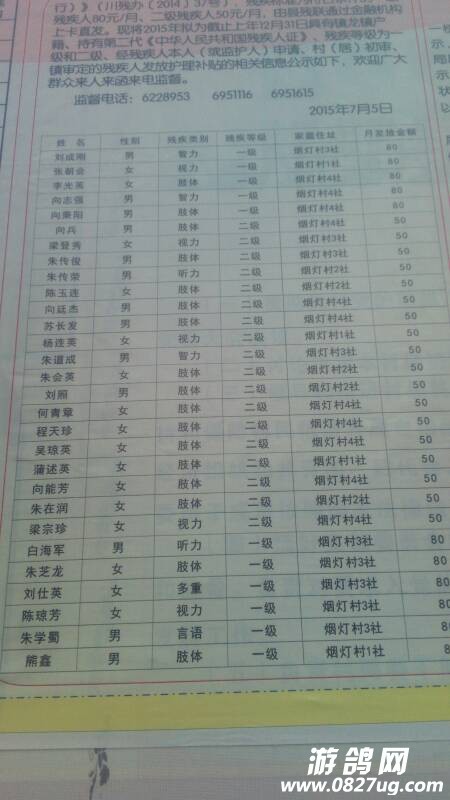 行)》(川残办(2014)37号)
残疾人80元/月、二级残疾人50元/月,由县残联通过金融机构
上卡直发。现将2015年拟为截止上年12月31日具有镇龙镇户
籍、持有第二代《中华人民共和国残疾人证》、残疾等级为一
级和二级、经残疾人本人(或监护人)申请、村(居)初审、
镇审定的残疾人发放护理补贴的相关信息公示如下,欢迎广大
群众来人来函来电监督。
监督电话:6228953 6951116 6951615
2015年7月5日
姓 名 性别 残疾类别 残疾等级 家庭住址 月发放金额
刘成刚 男 智力 一级 烟灯村3社 80
张朝会 女 视力 一级 烟灯村1社 80
李光英 女 肢体 一级 烟灯村4社 80
向志强 男 智力 一级 烟灯村4社 80
向秉阳 男 肢体 一级 烟灯村4社 80
向兵 男 肢体 二级 烟灯村4社 50
梁登秀 女 视力 二级 烟灯村2社 50
朱传俊 男 肢体 二级 烟灯村3社 50
朱传荣 男 听力 二级 烟灯村2社 50
陈玉连 女 肢体 二级 烟灯村2社 50
向廷杰 男 肢体 二级 烟灯村4社 50
苏长发 男 肢体 二级 烟灯村4社 50
杨连英 女 视力 二级 烟灯村1社 50
朱道成 男 智力 二级 烟灯村3社 50
朱会英 女 肢体 二级 烟灯村2社 50
刘照 男 肢体 二级 烟灯村2社 50
何青章 女 肢体 二级 烟灯村4社 50
程天珍 女 肢体 二级 烟灯村4社 50
吴琼英 女 肢体 二级 烟灯村4社 50
蒲述英 女 肢体 二级 烟灯村1社 50
向能芳 女 肢体 二级 烟灯村4社 50
朱在润 女 肢体 二级 烟灯村2社 50
梁宗珍 女 视力 二级 烟灯村4社 50
白海军 男 听力 一级 烟灯村3社 80
朱芝龙 女 肢体 一级 烟灯村3社 80
刘仕英 女 多重 一级 烟灯村3社 80
陈琼芳 女 视力 一级 烟灯村3社 80
朱学蜀 男 言语 一级 烟灯村3社 80
熊鑫 男 肢体 一级 烟灯村1社 80
游鸽网
www.0827ug.com